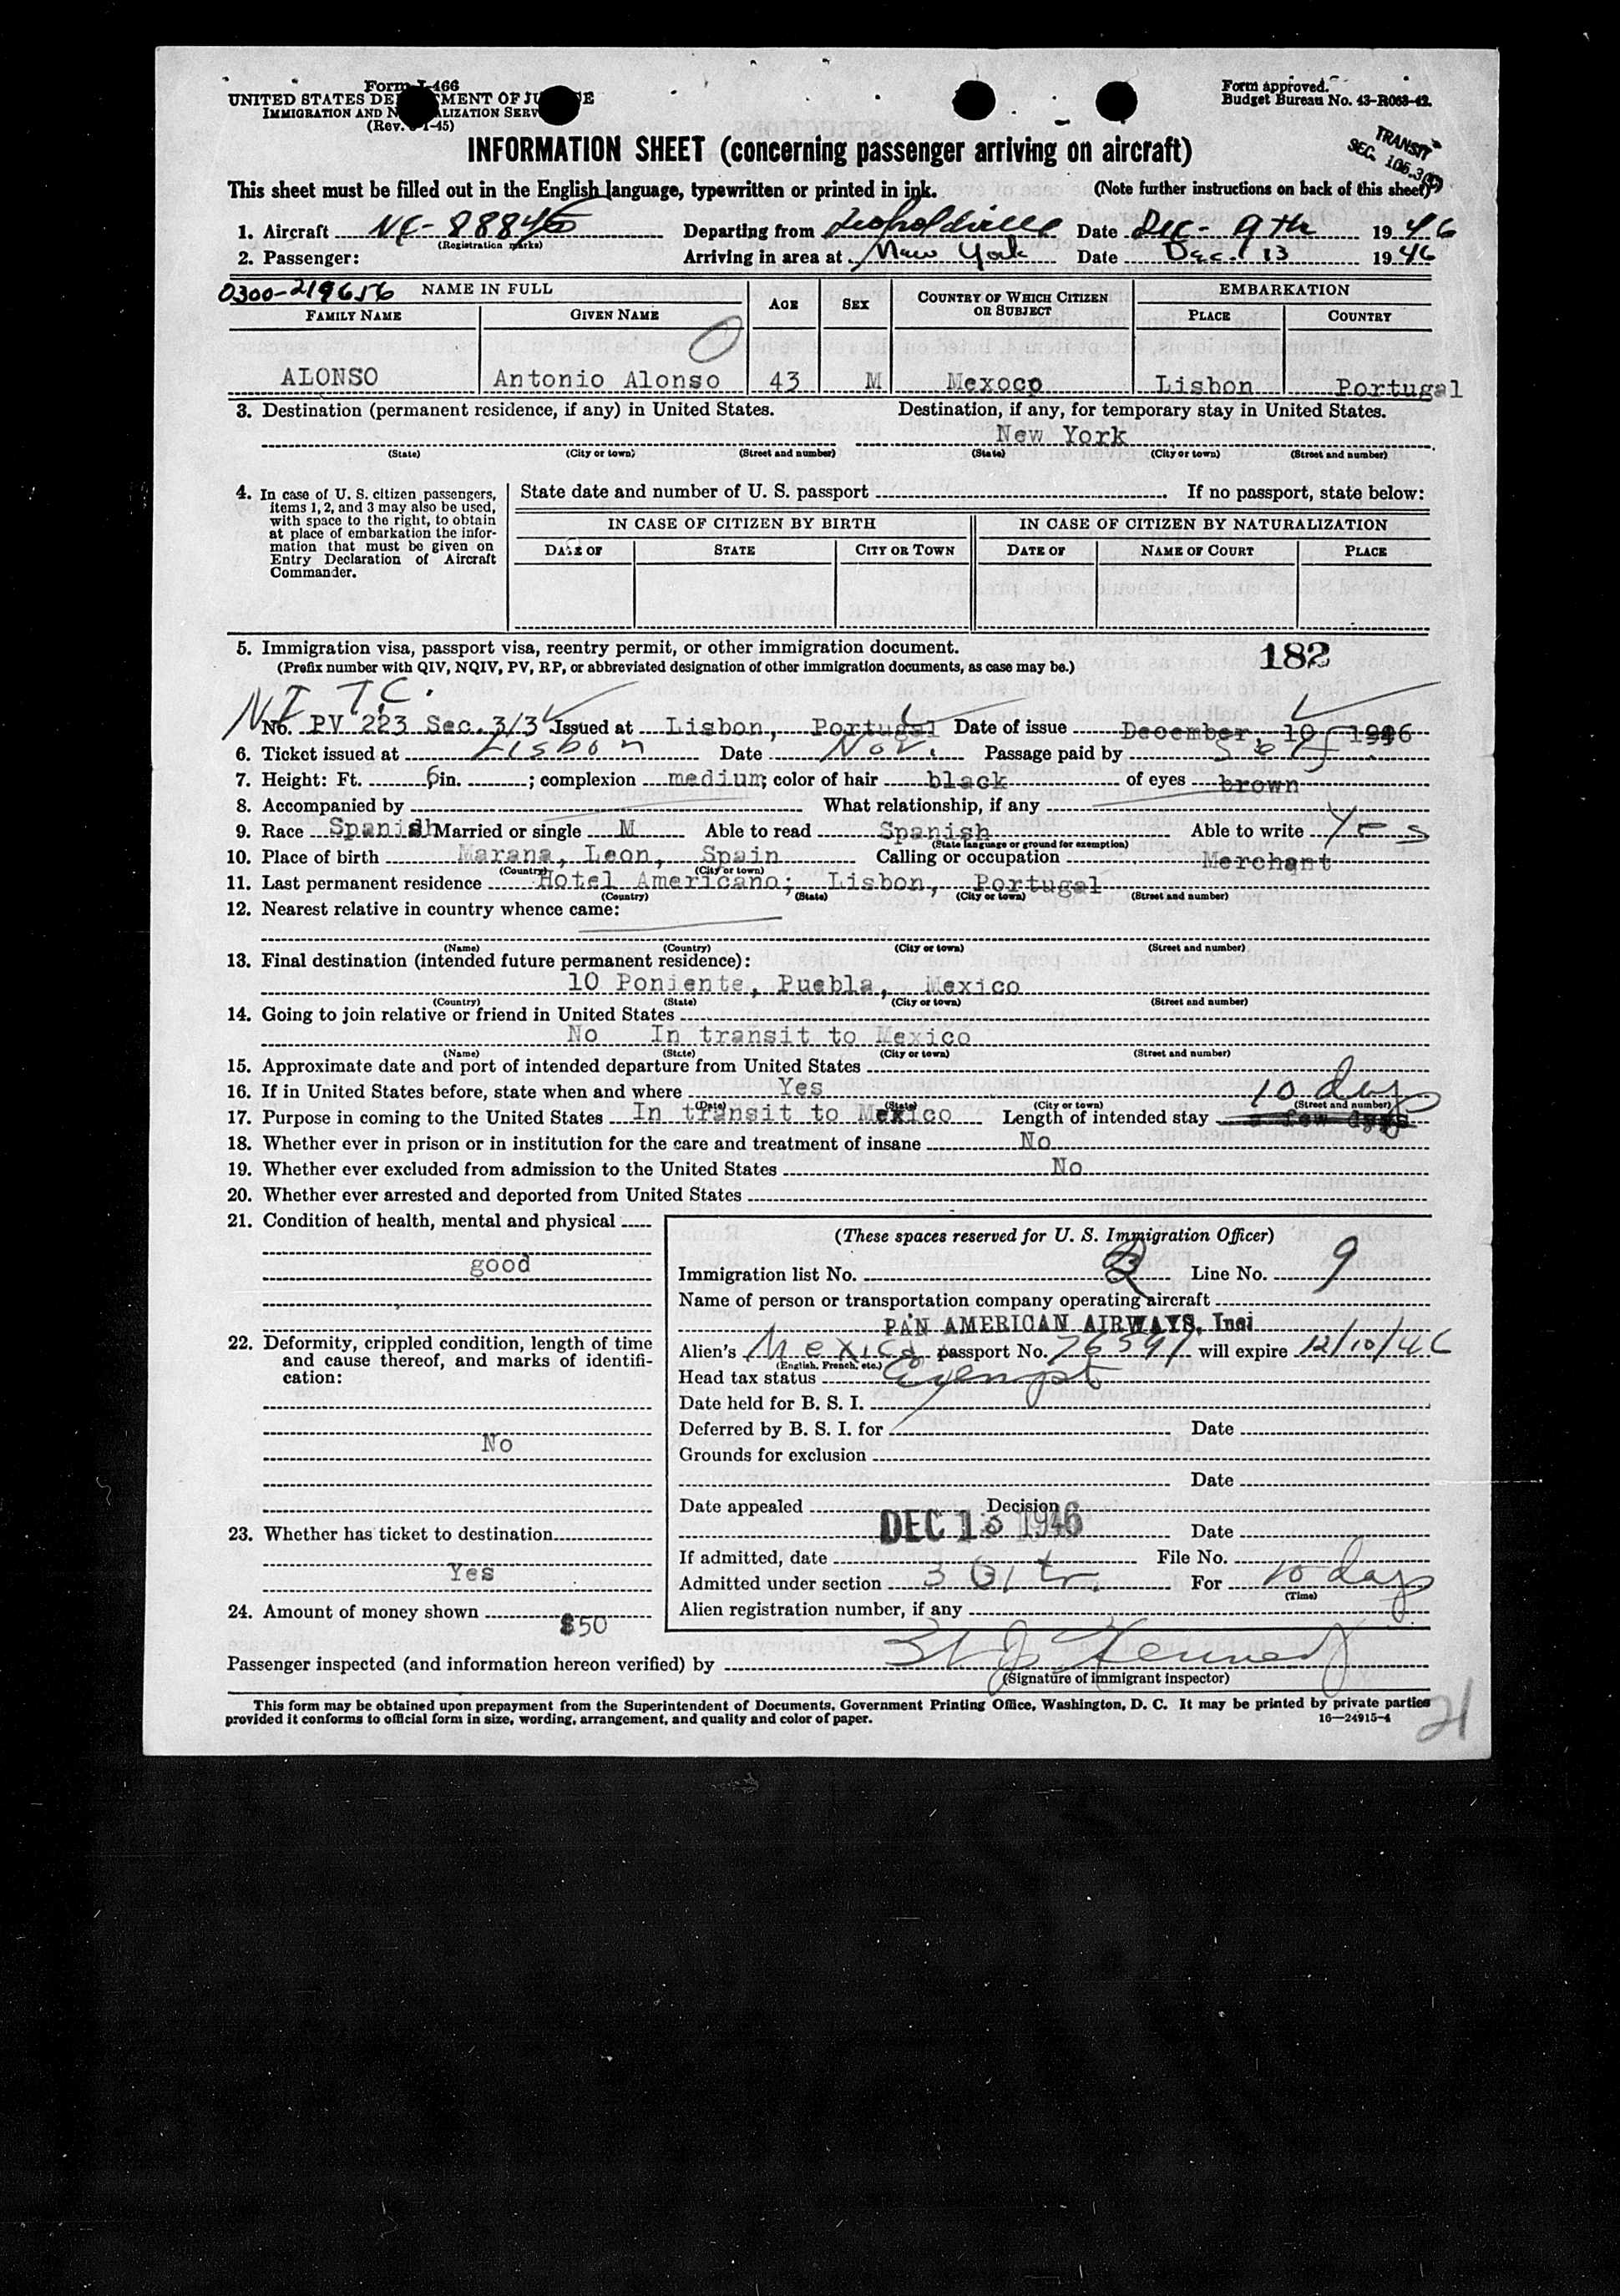 Form I-466
UNITED STATES DEPARTMENT OF JUSTICE
IMMIGRATION AND NATURALIZATION SERVICE
(Rev. -1-45)
Form approved.
Budget Bureau No. 43-R063-42.
INFORMATION SHEET (concerning passenger arriving on aircraft)
TRANSIT
SEC. 106.3
This sheet must be filled out in the English language, typewritten or printed in ink. (Note further instructions on back of this sheet)
1. Aircraft NC-88845 Departing from Leopoldville Date Dec- 9th 1946
(Registration marks)
2. Passenger: Arriving in area at New York Date Dec. 13 1946
0300-219656 NAME IN FULL AGE SEX COUNTRY OF WHICH CITIZEN OR SUBJECT EMBARKATION
FAMILY NAME GIVEN NAME PLACE COUNTRY
ALONSO Antonio Alonso 43 M Mexoco Lisbon Portugal
3. Destination (permanent residence, if any) in United States. Destination, if any, for temporary stay in United States.
New York
(State) (City or town) (Street and number) (State) (City or town) (Street and number)
4. In case of U. S. citizen passengers, items 1, 2, and 3 may also be used, with space to the right, to obtain at place of embarkation the information that must be given on Entry Declaration of Aircraft Commander.
State date and number of U. S. passport If no passport, state below:
IN CASE OF CITIZEN BY BIRTH IN CASE OF CITIZEN BY NATURALIZATION
DATE OF STATE CITY OR TOWN DATE OF NAME OF COURT PLACE
5. Immigration visa, passport visa, reentry permit, or other immigration document. 182
(Prefix number with QIV, NQIV, PV, RP, or abbreviated designation of other immigration documents, as case may be.)
NI T.C.
No. PV 223 Sec. 3/3 Issued at Lisbon, Portugal Date of issue December 10 1946
6. Ticket issued at Lisbon Date Nov. Passage paid by Self
7. Height: Ft. 6 in. ; complexion medium; color of hair black of eyes brown
8. Accompanied by What relationship, if any
9. Race Spanish Married or single M Able to read Spanish Able to write Yes
(State language or ground for exemption)
10. Place of birth Marana, Leon, Spain Calling or occupation Merchant
(Country) (City or town)
11. Last permanent residence Hotel Americano; Lisbon, Portugal
(Country) (State) (City or town) (Street and number)
12. Nearest relative in country whence came:
(Name) (Country) (City or town) (Street and number)
13. Final destination (intended future permanent residence):
10 Poniente, Puebla, Mexico
(Country) (State) (City or town) (Street and number)
14. Going to join relative or friend in United States
No In transit to Mexico
(Name) (State) (City or town) (Street and number)
15. Approximate date and port of intended departure from United States
16. If in United States before, state when and where Yes 10 days
(Date) (State) (City or town) (Street and number)
17. Purpose in coming to the United States In transit to Mexico Length of intended stay a few days
18. Whether ever in prison or in institution for the care and treatment of insane No
19. Whether ever excluded from admission to the United States No
20. Whether ever arrested and deported from United States
21. Condition of health, mental and physical
good
22. Deformity, crippled condition, length of time and cause thereof, and marks of identification:
No
23. Whether has ticket to destination
Yes
24. Amount of money shown $50
(These spaces reserved for U. S. Immigration Officer)
Immigration list No. 2 Line No. 9
Name of person or transportation company operating aircraft
PAN AMERICAN AIRWAYS, Inc.
Alien's Mexico passport No. 76591 will expire 12/10/46
(English, French, etc.)
Head tax status Exempt
Date held for B. S. I.
Deferred by B. S. I. for Date
Grounds for exclusion
Date
Date appealed Decision
DEC 13 1946 Date
If admitted, date File No.
Admitted under section 3 (3) tr. For 10 days
(Time)
Alien registration number, if any
Passenger inspected (and information hereon verified) by
(Signature of immigrant inspector)
This form may be obtained upon prepayment from the Superintendent of Documents, Government Printing Office, Washington, D. C. It may be printed by private parties
provided it conforms to official form in size, wording, arrangement, and quality and color of paper. 16—24915-4
21